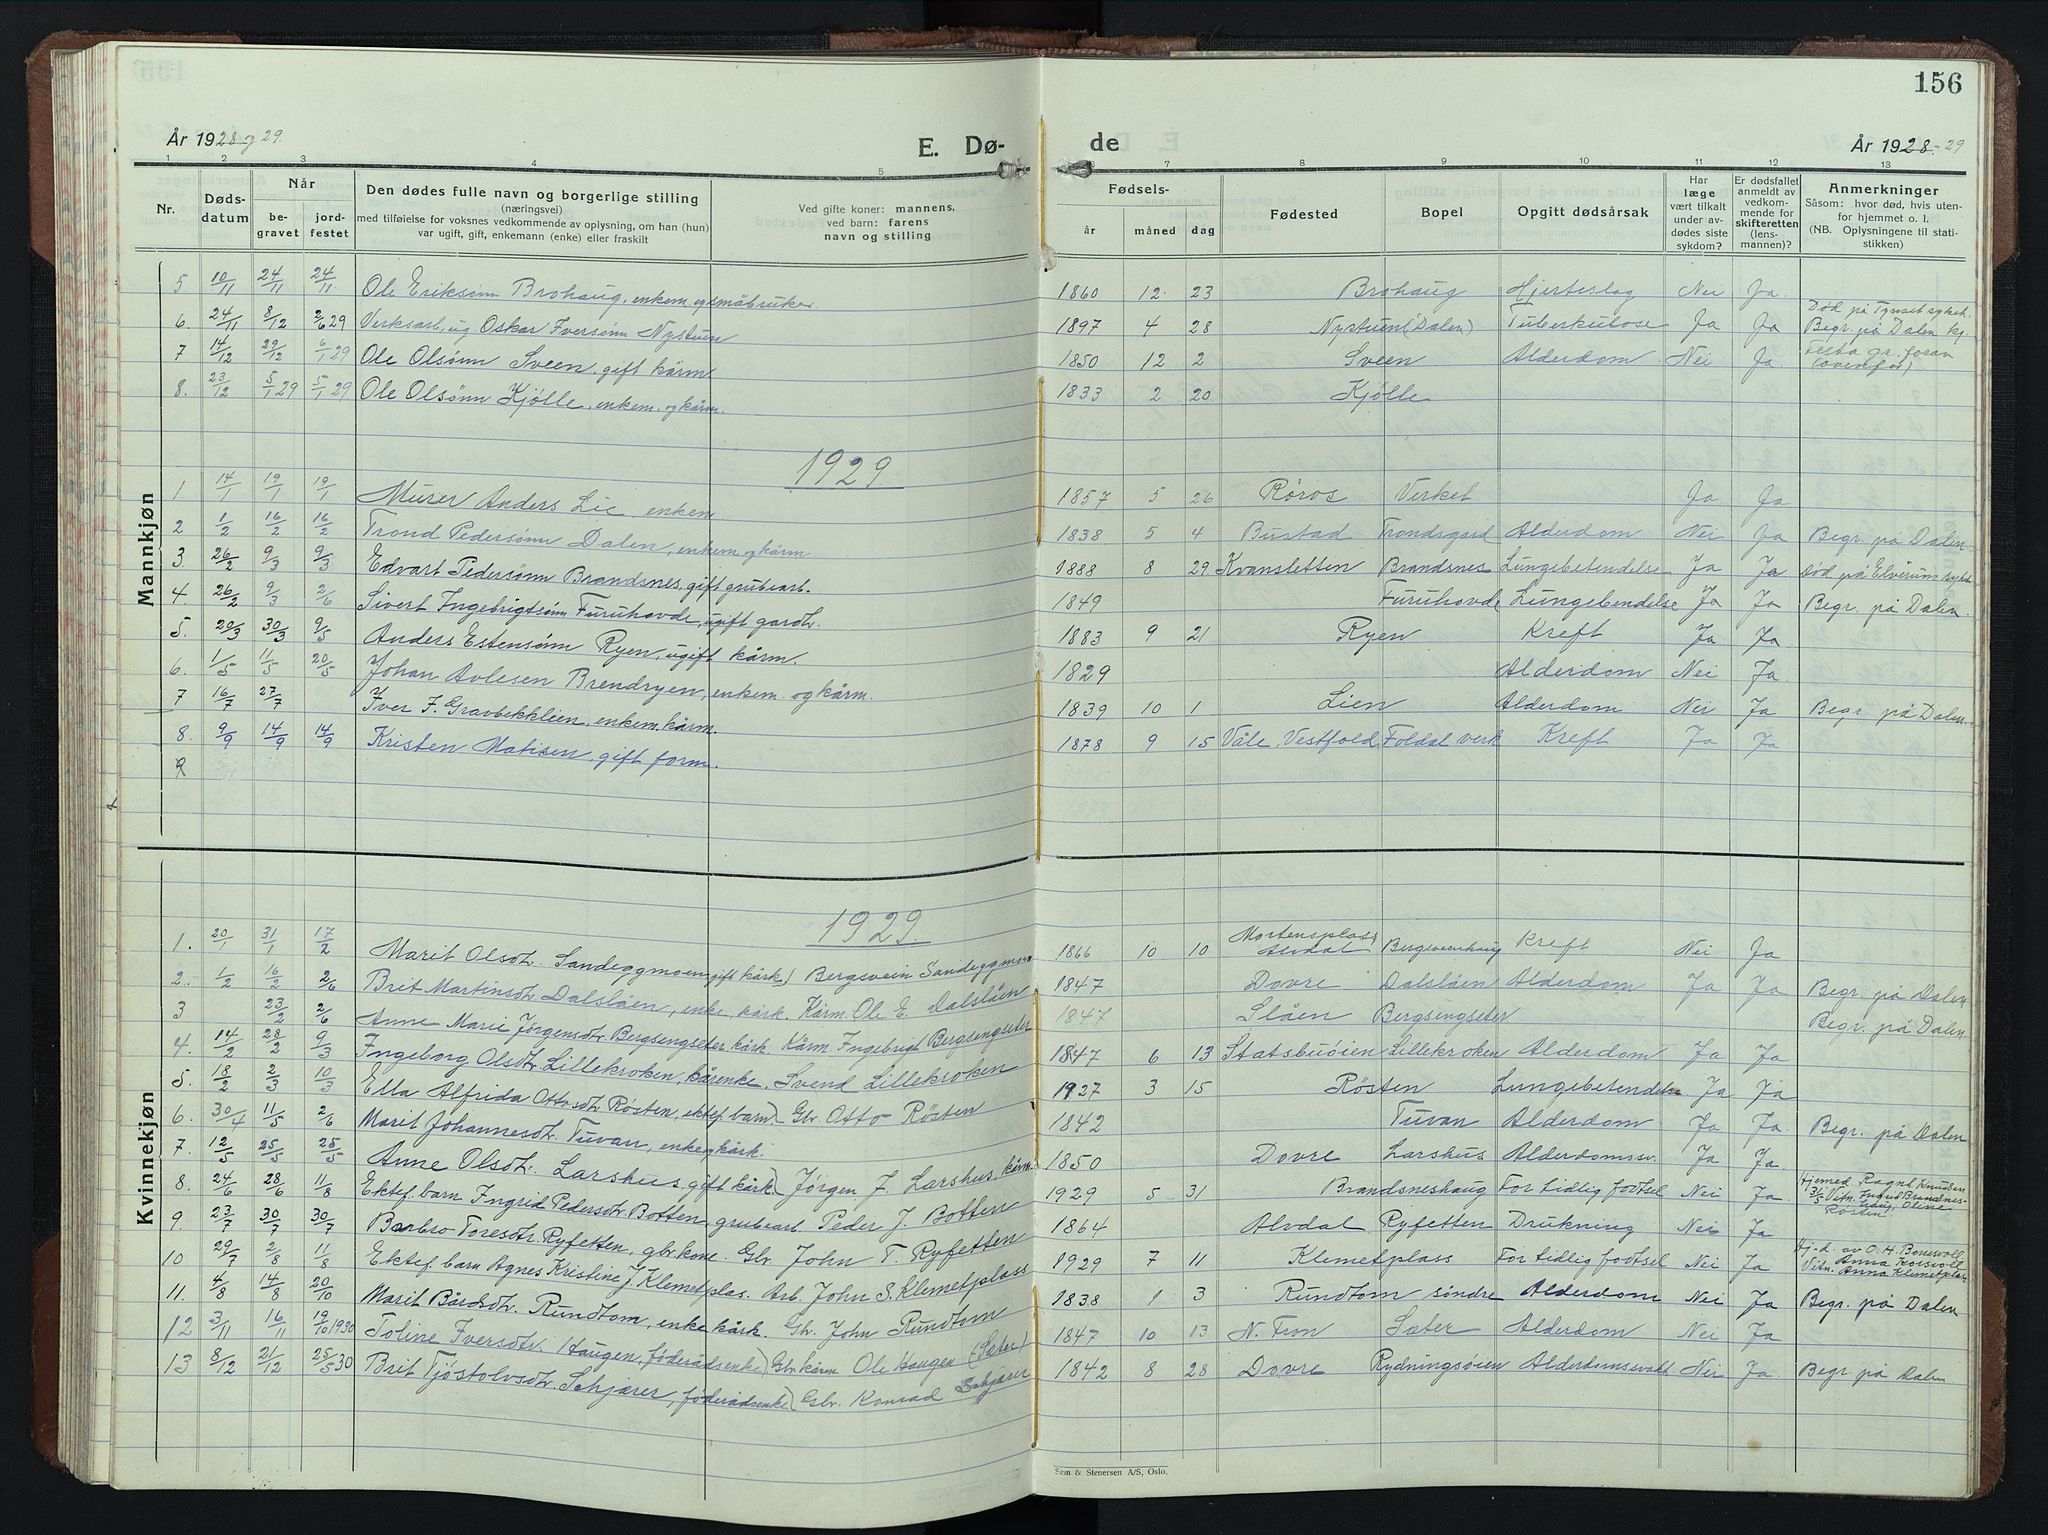 156
År 1928 og 29.
E. Dø-
de
År 1928-29
1 2 3 4 5 6 7 8 9 10 11 12 13
Nr.
Døds-
datum
Når
be-
gravet
jord-
festet
Den dødes fulle navn og borgerlige stilling
(næringsvei)
med tilføielse for voksnes vedkommende av oplysning, om han (hun)
var ugift, gift, enkemann (enke) eller fraskilt
Ved gifte koner: mannens,
ved barn: farens
navn og stilling
Fødsels-
år måned dag
Fødested
Bopel
Opgitt dødsårsak
Har
læge
vært tilkalt
under av-
dødes siste
sykdom?
Er dødsfallet
anmeldt av
vedkom-
mende for
skifteretten
(lens-
mannen)?
Anmerkninger
Såsom: hvor død, hvis uten-
for hjemmet o. l.
(NB. Oplysningene til stati-
stikken)
Mannkjøn
5 10/11 24/11 24/11 Ole Eriksønn Brohaug, enkem. og småbruker 1860 12 23 Brohaug Hjerteslag Nei Ja
6. 24/11 8/12 2/6 29 Verksarb, ug Oskar Iversønn Nystuen 1897 4 28 Nystuen (Dalen) Tuberkulose Ja Ja Død på Tynset sykeh. Begr. på Dalen kg.
7 14/12 29/12 6/1 29 Ole Olsønn Sveen, gift kårm. 1850 12 2 Sveen Alderdom Nei Ja.
8. 23/12 5/1 29 5/1 29 Ole Olsønn Kjølle, enkem. og kårm. 1833 2 20 Kjølle
1929
1 14/1 19/1 19/1 Murer Anders Lie, enkem. 1857 5 26 Røros Verket Ja Ja
2 1/2 16/2 16/2 Trond Pedersønn Dalen, enkem. og kårm. 1838 5 4 Bustad Trondsgard Alderdom Nei Ja Begr. på Dalen
3 26/2 9/3 9/3 Edvart Pedersønn Brandsnes, gift grubearb. 1888 8 29 Kvansletten Brandsnes Lungebetendelse Ja Ja død på Elverum sykh.
4. 26/2 9/3 2/6 Sivert Ingebrigtsønn Furuhovde, ugift gardbr. 1849 Furuhovde Lungebendelse Ja Ja Begr. på Dalen.
5. 20/3 30/3 9/5 Anders Estensønn Ryen, ugift kårm. 1883 9 21 Ryen Kreft Ja Ja
6. 1/5 11/5 20/5 Johan Avlesen Brendryen, enkem. og kårm. 1829 Alderdom Nei Ja
7 16/7 27/7 Iver F. Gravbekklien, enkem. kårm. 1839 10 1 Lien Alderdom Nei Ja Begr. på Dalen.
8. 9/9 14/9 14/9 Kristen Matisen, gift form. 1878 9 15 Våle, Vestfold Foldal verk Kreft Ja Ja
9
Kvinnekjøn
1929.
1. 20/1 31/1 17/2 Marit Olsdtr. Sandeggmoen (gift kårk.) Bergsvein Sandeggmoen 1866 10 10 Mortensplass Alvdal Bergsveinhaug Kreft Nei Ja
2. 1/2 16/2 2/6 Brit Martinsdtr. Dalslåen, enke, kårk. Kårm. Ole E. Dalslåen 1847 Dovre Dalslåen Alderdom Ja Ja Begr. på Dalen
3 23/2 2/6 Anne Marie Jørgensdtr. Bergsengseter kårk. Kårm. Ingebrigt Bergsengseter 1847 Slåen Bergsengseter Begr. på Dalen
4. 14/2 28/2 9/3 Ingeborg Olsdtr. Lillekroken, kårenke. Svend Lillekroken 1847 6 13 Statsbuøien Lillekroken Alderdom Ja Ja
5. 18/2 2/3 10/3 Ella Alfrida Ottosdtr Røsten, ektef. barn) Gbr. Otto Røsten 1927 3 15 Røsten Lungebetendelse Ja Ja
6. 30/4 11/5 2/6 Marit Johannesdtr. Tuvan, enke og kårk. 1842 Tuvan Alderdom Ja Ja. Begr. på Dalen
7. 12/5 25/5 25/5 Anne Olsdtr. Larshus, gift kårk.) Jørgen J. Larshus, kårm. 1850 Dovre Larshus Alderdomssv. Ja Ja.
8. 24/6 28/6 11/8 Ektef. barn Ingrid Pedersdtr Botten, grubearb. Peder J. Botten 1929 5 31 Brandsneshaug For tidlig fødsel Nei Ja. Hjemed Ragnh. Knudsen 31/5 Vitn. Ingrid Brandsneshaug, Oline Røsten
9. 23/7 30/7 30/7 Barbro Toresdtr. Ryfetten, gbr. kone. Gbr. John T. Ryfetten 1864 Alvdal Ryfetten Drukning Nei Ja
10 29/7 2/8 11/8 Ektef. barn Agnes Kristine J. Klemetplas. Arb. John S. Klemetplass 1929 7 11 Klemetplass For tidlig fødsel Nei Ja Vitn. Anna Klemetplass
11. 4/8 14/8 20/10 Marit Bårdsdtr. Rundtom, enke kårk. Gbr. John Rundtom 1838 1 3 Rundtom søndre Alderdom Nei Ja Begr. på Dalen
12 3/11 16/11 19/10 1930 Toline Iversdtr. Haugen, føderådsenke) Gbr. kårm. Ole Haugen (Sæter) 1847 10 13 N. Fron Sæter Alderdom Nei Ja
13 8/12 21/12 25/5 30 Brit Tjøstolvsdtr. Schjærer, føderådsenke) Gbr. Konrad Schjærer 1842 8 28 Dovre Rydningsøien Alderdomssvakh. Nei Ja. Begr. på Dalen
Sem & Stenersen A/S, Oslo.